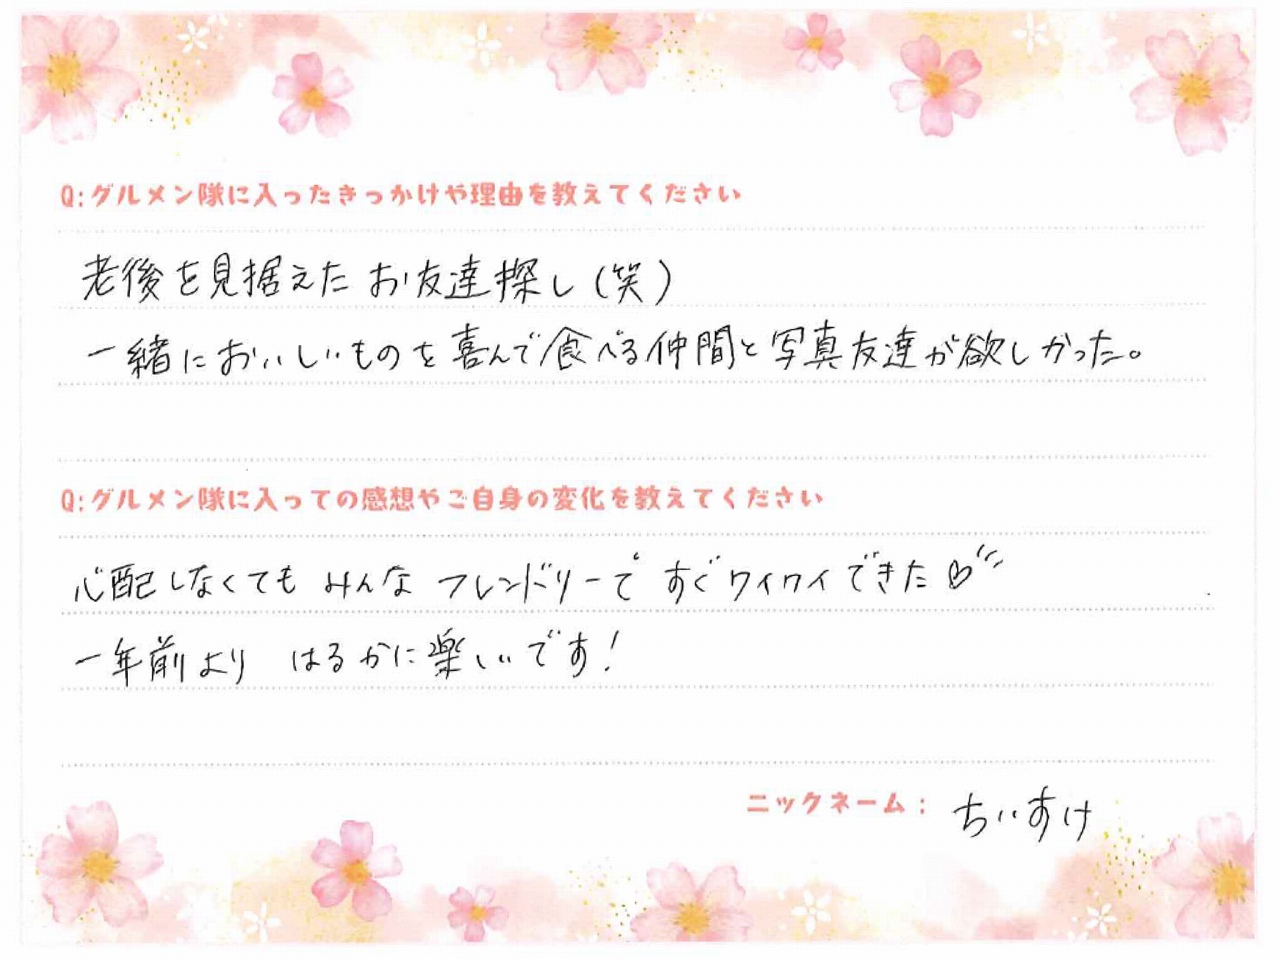 Q:グルメン隊に入ったきっかけや理由を教えてください
老後を見据えたお友達探し(笑)
一緒においしいものを喜んで食べる仲間と写真友達が欲しかった。
Q:グルメン隊に入っての感想やご自身の変化を教えてください
心配しなくても みんな フレンドリーで すぐワイワイできた♡
一年前より はるかに楽しいです!
ニックネーム: ちいすけ